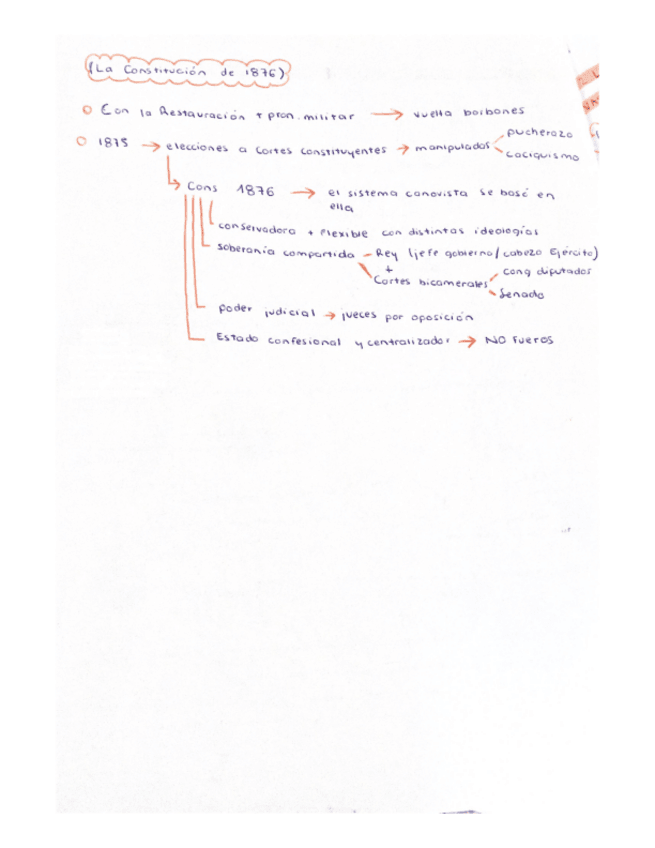 (La Constitución de 1876)
Con la Restauración + pron. militar → vuelta borbones
1875 → elecciones a Cortes constituyentes → manipulados pucherazo
caciquismo
Cons 1876 → el sistema canovista se basó en
ella
conservadora + flexible con distintas ideologías
soberanía compartida - Rey (jefe gobierno/cabeza Ejército)
+
Cortes bicamerales cong diputados
Senado
poder judicial → jueces por oposición
Estado confesional y centralizador → NO fueros